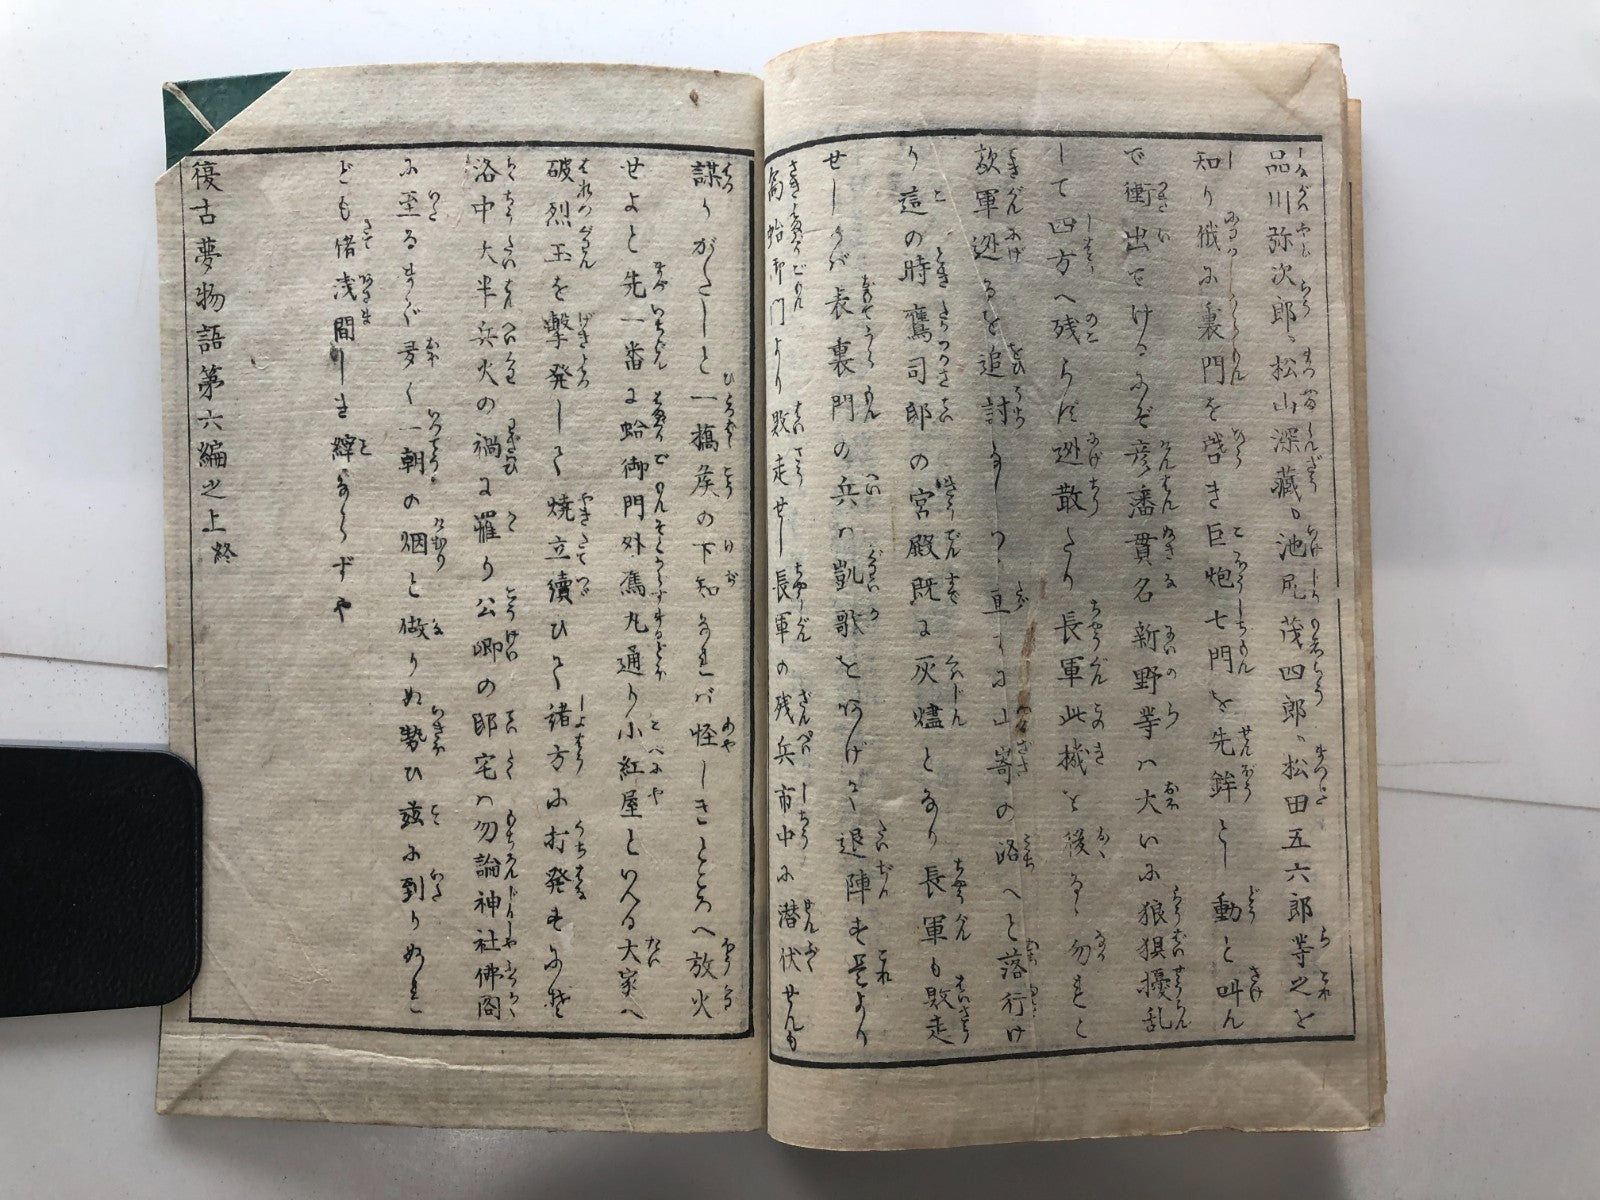 品川弥次郎、松山深藏、池尻茂四郎、松田五六郎等之を
知り俄に裏門を啓き巨炮七門を先鉾とし動と叫ん
で衝出でけるにぞ彦藩貫名新野等ハ大いに狼狽擾乱
して四方へ残らず迯散たり長軍此機を後るゝ勿れと
敵軍迯るを追討なしつゝ直ちに山嵜の路へと落行け
り這の時鷹司郎の宮殿既に灰燼となり長軍も敗走
せしかバ長裏門の兵ハ凱歌をあげて退陣す是より
蛤御門より敗走せし長軍の残兵市中に潜伏せんも
謀りがたしと一橋矦の下知なれバ怪しきところへ放火
せよと先一番に蛤御門外烏丸通り小紅屋といへる大家へ
破烈玉を撃発して焼立續ひて諸方に打発すにぞ
洛中大半兵火の禍に罹り公卿の邸宅ハ勿論神社佛閣
に至るまで多く一朝の烟と做りぬ勢ひ茲に到りぬれ
ども偖浅間しき縡ならずや
復古夢物語第六編之上終